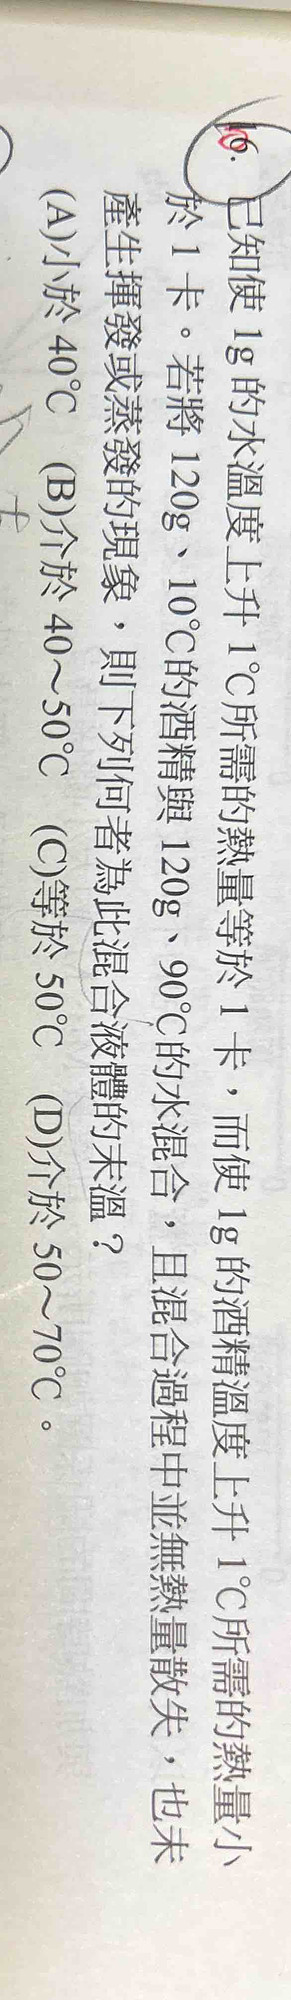 10. 已知使 1g 的水溫度上升 1℃所需的熱量等於 1 卡，而使 1g 的酒精溫度上升 1℃所需的熱量小
於 1 卡。若將 120g、10℃的酒精與 120g、90℃的水混合，且混合過程中並無熱量散失，也未
產生揮發或蒸發的現象，則下列何者為此混合液體的末溫？
(A)小於 40℃ (B)介於 40～50℃ (C)等於 50℃ (D)介於 50～70℃。